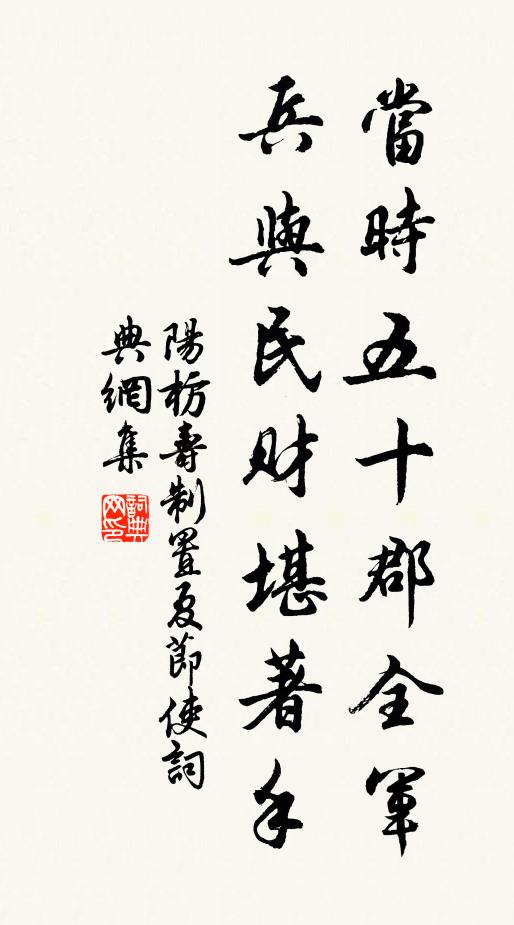 當時五十郡全軍
兵與民財堪著手
陽枋壽制置夏節使詞
典網集
詞典網印